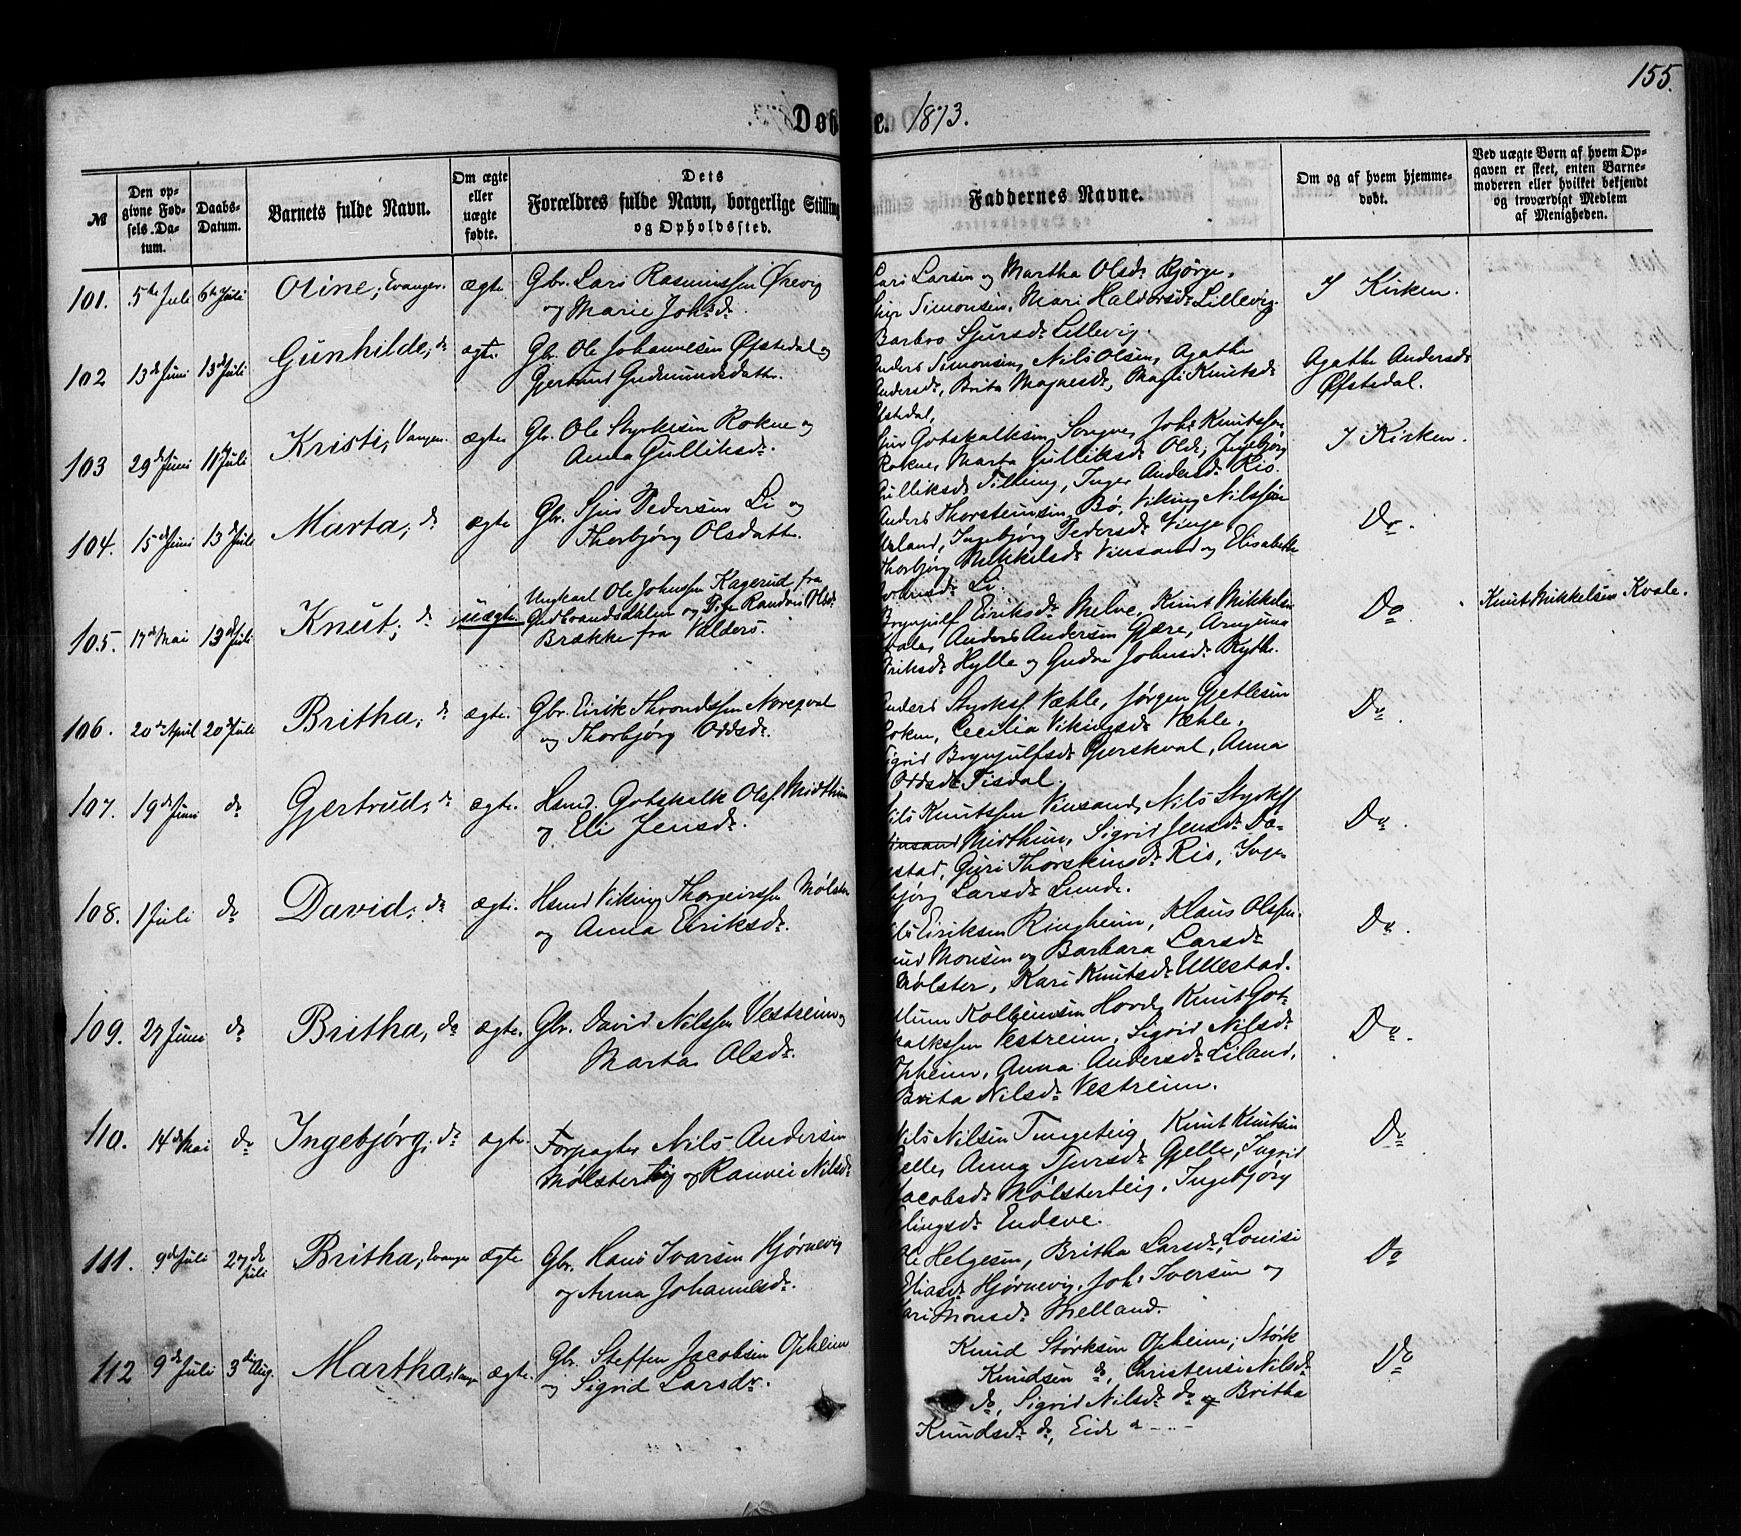 155.
Døb
e. 1873.
№
Den op-
givne Fød-
sels-Da-
tum.
Daabs-
Datum.
Barnets fulde Navn.
Om ægte
eller
uægte
fødte.
Dets
Forældres fulde Navn, borgerlige Stilling
og Opholdssted.
Faddernes Navne.
Om og af hvem hjemme-
døbt.
Ved uægte Børn af hvem Op-
gaven er skeet, enten Barne-
moderen eller hvilket bekjendt
og troværdigt Medlem
af Menigheden.
101. 5te Juli 6te Juli Oline, Evanger. ægte Gbr. Lars Rasmussen Økevig
og Marie Johsdr.
Lars Larsen og Martha Olsdr Bjørge,
Simonsen, Mari Haldorsdr Lillevig
Barbro Sjursdr Lillevig.
I Kirken.
102 13de Juni 13de Juli Gunhilde, do ægte. Gbr. Ole Johannesen Øfstedal og
Gjertrud Gudmundsdatter.
Anders Simonsen, Nils Olsen, Agathe
Andersdr, Brita Magnesdr, Magli Knutsdr
Agathe Andersdr
Øfstedal.
103 29de Juni 11te Juli Kristi, Vangen. ægte Gbr. Ole Styrkesen Rokne og
Anna Gulliksdr.
Gotskalksen Songve, Johs Knutssen
Rokne, Marta Gulliksdr Olde, Ingebjørg
Gulliksdr Tilling, Inger Andersdr Ris.
I Kirken.
104. 15de Juni 13de Juli Marta, do ægte Gbr. Sjur Pedersen Li og
Thorbjørg Olsdatter.
Anders Thorsteinsen Bø, Viking Nilssøn
Ingebjørg Pedersdr Vinje,
Thorbjørg Mikkelsdr Vinsand og Elisabethe
Li.
Do.
105. 17de Mai 13de Juli Knut, do uægte. Ungkarl Ole Johnssen Kagerud fra
Gudbrandsdalen og Pige Randvei Olsdr
Brække fra Valders.
Brynjulf Eriksdr Melve, Knut Mikkelsen
Anders Andersen Gjære,
Eriksdr Hylle og Gudve Johnsdr Kyte.
Do.
Knut Mikkelsen Kvale.
106. 20de April 20de Juli Britha, do ægte. Gbr. Eirik Throndssen Noreqval
og Thorbjørg Oddsdr.
Anders Styrksf. Væhle, Jørgen Gjetlesen
Cecilia Vikingsdr Væhle,
Sigrid Brynjulfsdr Gjerskval, Anna
Oddsdr Tisdal.
Do.
107. 19de Juni do Gjertrud, do ægte. Hsmd. Gotskalk Olsf. Midthun
og Eli Jensdr.
Nils Knutssen Vinsand, Nils Styrksf
Midthun, Sigrid Jensdr Dø-
estad, Guri Thorsteinsdr Ris, Inge-
bjørg Larsdr Lunde.
Do.
108. 1 Juli do David, do ægte. Hsmd Viking Thorgeirssen Mølster
og Anna Eiriksdr.
Eiriksen Ringheim, Klaus Olssen
Monsen og Barbara Larsdr
Mølster, Kari Knutsdr Ullestad.
Do.
109. 27 Juni do Britha, do ægte. Gbr. David Nilssen Vestreim og
Marta Olsdr.
Kolbeinsen Horde, Knut Got-
skalkssen Vestreim, Sigrid Nilsdr
Opheim, Anna Andersdr Liland,
Brita Nilsdr Vestreim.
Do.
110. 14de Mai do Ingebjørg, do ægte. Forpagter Nils Andersen
Mølsterteig og Ranvei Nilsdr
Nils Nilsen Tungeteig Knut Knutsen
Gjelle, Anna Sjursdr Gjelle, Ingrid
Jacobsdr Mølsterteig, Ingebjørg
Endeve.
Do
111. 9de Juli 27de
Juli Britha, Evanger ægte Gbr. Hans Ivarsen Hjørnevig
og Anna Johannesdr.
Ole Helgesen, Britha Larsdr, Louise
Eliasdr Hjørnevig, Johs Iversen og
Kari Monsdr Melland.
Do
112 9de Juli 3die Aug. Martha, Vangen ægte. Gbr. Steffen Jacobsen Opheim
og Sigrid Larsdr.
Knud Størksen Opheim, Størk
Knudsen do, Christense Nilsdr
do, Sigrid Nilsdr do og Britha
Knudsdr do, Eide
Do